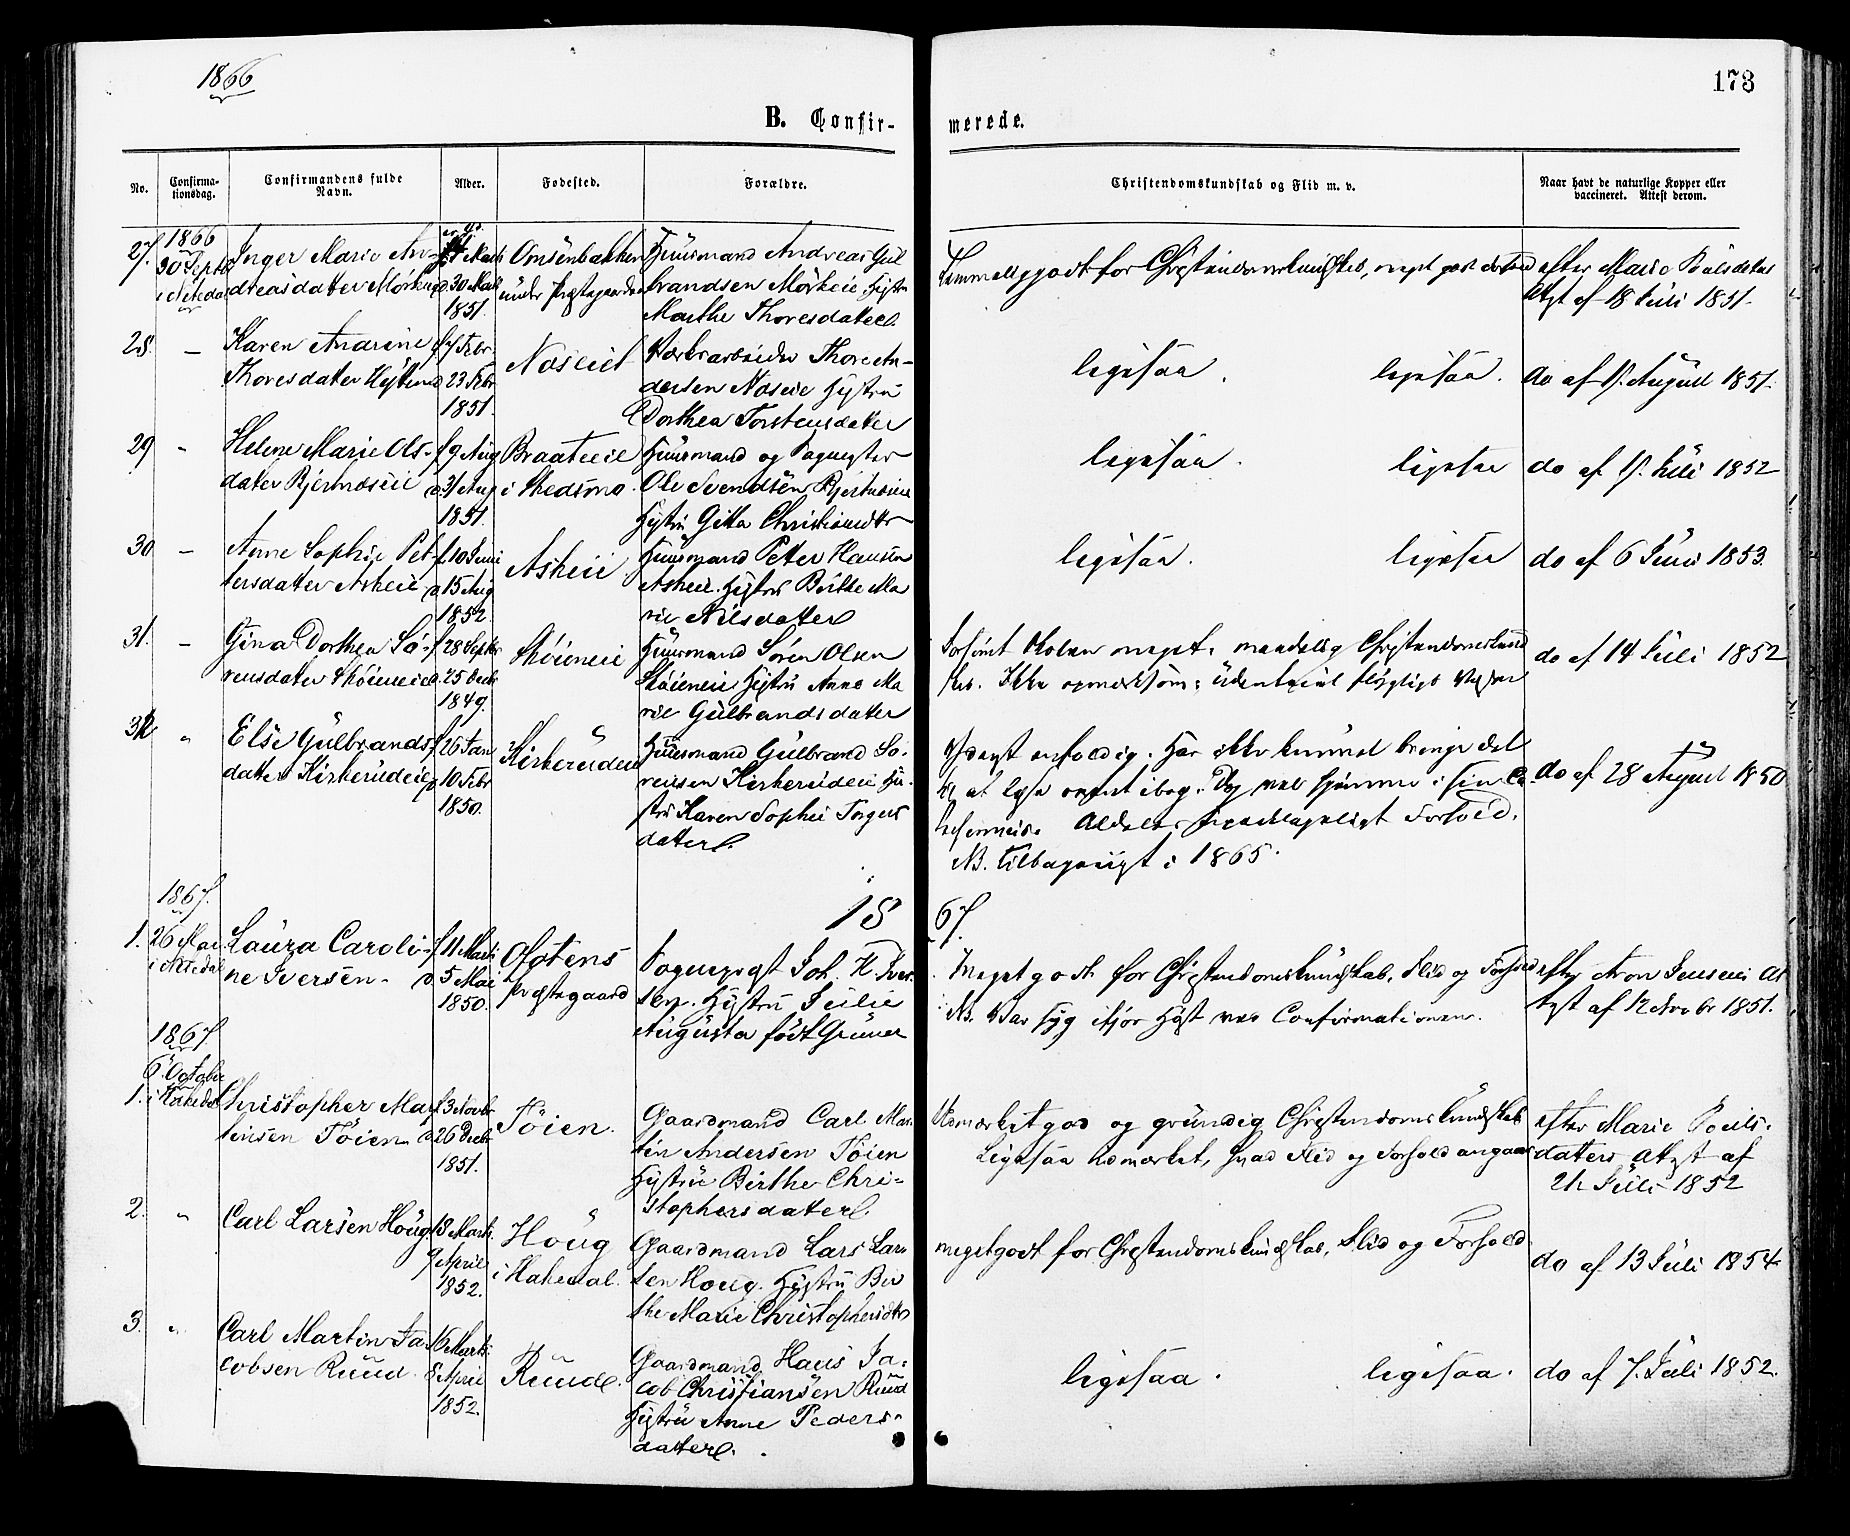 1866
173
B. Confir-
merede.
No.
Confirma-
tionsdag.
Confirmandens fulde
Navn.
Alder.
Fødested.
Forældre.
Christendomskundskab og Flid m. v.
Naar havt de naturlige Kopper eller
vaccineret. Attest derom.
27.
1866
30 Septb
i Nitedal
Inger Marie An-
dreasdatter Mörk
30 Mai
1851.
Omsenbakken
under Præstegaarden
Huusmand Andreas Gul
brandsen Mörkeie Hustru
Marthe Thoresdatter.
Temmelig godt for Christendomskundskab, meget god
efter Marie Poulsdatters
Attest af 18 Juli 1851.
28.
Karen Andrine
Thoresdatter
f 7 Febr.
d 23 Febr
1851.
Naseie
Thore An-
dersen Naseie Hustru
Dorthea Torstensdatter
ligesaa
ligesaa.
do af 17. August 1851.
29
Helene Marie Ols-
datter
f 9 Aug
d 31 Aug
1851.
Braateeie
i Skedsmo
Huusmand og
Ole Svendsen
Hustru Gitta Christiansdtr
ligesaa.
ligesaa
do af 17. Juli 1852
30
Anne Sophie Pet-
tersdatter Askeie
f 10 Juni
d 15 Aug
1852
Askeie
Huusmand Petter Hansen
Askeie. Hustru Birthe Ma
rie Nilsdatter
ligesaa.
ligesaa
do af 6 Juni 1853.
31.
Gina Dorthea Sö-
rensdatter Sköieneie
f 28 Septbr
d. 25 Decb
1849.
Sköieneie
Huusmand Sören Olsen
Sköieneie Hustru Anne Ma
rie Gulbrandsdatter
Forsömt Skolen meget. maadelig Christendomskund
skab. Ikke opmærksom;
do af 14 Juli 1852
32
Else Gulbrands-
datter Kirkerudeie
f 26 Jan
d 10 Febr
1850.
Kirkerudeie
Huusmand Gulbrand Sö-
rensen Kirkerudeie Hu-
stru Karen Sophie Torgers
datter.
enfoldig. Har ikke kunnet bringe det
til at læse
Aldeles Forhold.
NB. tilbagevist i 1865.
do af 28 August 1850
1867.
18
67.
1.
26 Mai
i Nitedal
Laura Caroli-
ne Iversen.
f 11 Marts
d. 5 Mai
1850.
Præstegaard
Joh. K. Iver
sen. Hustru Julie
Augusta födt Grüner
Meget godt for Christendomskundskab, Flid og Forhold
NB. Var syg ifjor Höst ved Confirmationen.
efter Aron Jensens At
test af 12 Novbr 1851.
1867
6. October
1.
i Hakedal
Christopher Mar-
tinsen Töien
f 3 Novbr
d 26 Decbr
1851.
Töien.
Gaardmand Carl Mar-
tin Andersen Töien
Hustru Birthe Chri-
stophersdatter.
Udmærket god og grundig Christendomskundskab
Ligesaa udmærket, hvad Flid og Forhold angaar
efter Marie Pouls-
datters Attest af
24 Juli 1852
2.
Carl Larsen Houg
f 8 Marts
9 April
1852.
Houg
i Hakedal.
Gaardmand Lars Lar-
sen Houg. Hustru Bir
the Marie Christophersdtr
meget godt for Christendomskundskab, Flid og Forhold
do af 13 Juli 1854
3.
Carl Martin Ja-
cobsen Ruud
16 Marts
8 April
1852.
Ruud.
Gaardmand Hans Ja-
cob Christiansen Ruud
Hustru Anne Peders-
datter.
ligesaa.
ligesaa.
do af 7. Juli 1852.